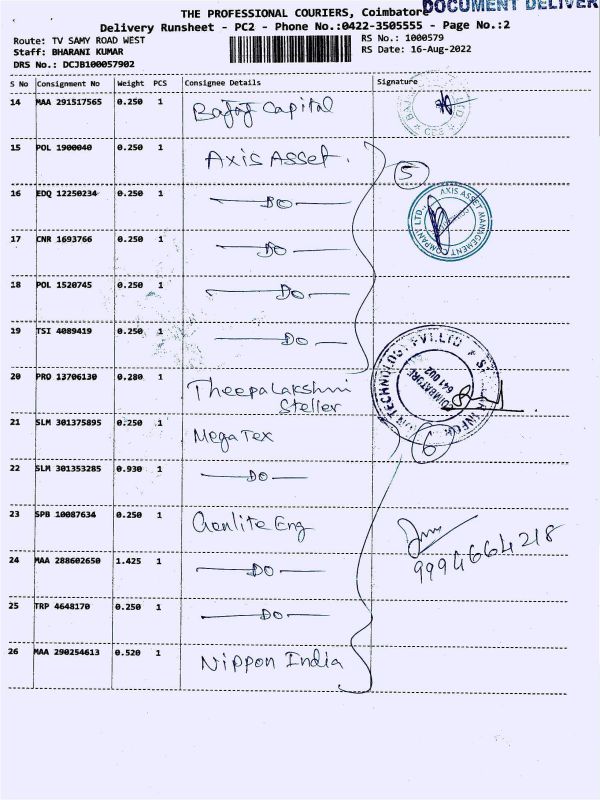 DOCUMENT DELIVER
THE PROFESSIONAL COURIERS, Coimbatore
Delivery Runsheet - PC2 - Phone No.:0422-3505555 - Page No.:2
Route: TV SAMY ROAD WEST RS No.: 1000579
Staff: BHARANI KUMAR RS Date: 16-Aug-2022
DRS No.: DCJB100057902
S No Consignment No Weight PCS Consignee Details Signature
14 MAA 291517565 0.250 1 Bajaj Capital
15 POL 1900040 0.250 1 Axis Asset.
5
16 EDQ 12250234 0.250 1 —DO—
AXIS ASSET MANAGEMENT COMPANY LTD.
17 CNR 1693766 0.250 1 —DO—
18 POL 1520745 0.250 1 —DO—
19 TSI 4089419 0.250 1 —DO—
20 PRO 13706130 0.280 1 Theepalakshmi
Steller
TECHNOLOGY PVT.LTD
COIMBATORE
641 002
21 SLM 301375895 0.250 1 Mega Tex
6
22 SLM 301353285 0.930 1 —DO—
23 SPB 10087634 0.250 1 Genlite Eng
24 MAA 288602650 1.425 1 —DO—
9994664218
25 TRP 4648170 0.250 1 —DO—
26 MAA 290254613 0.520 1 Nippon India